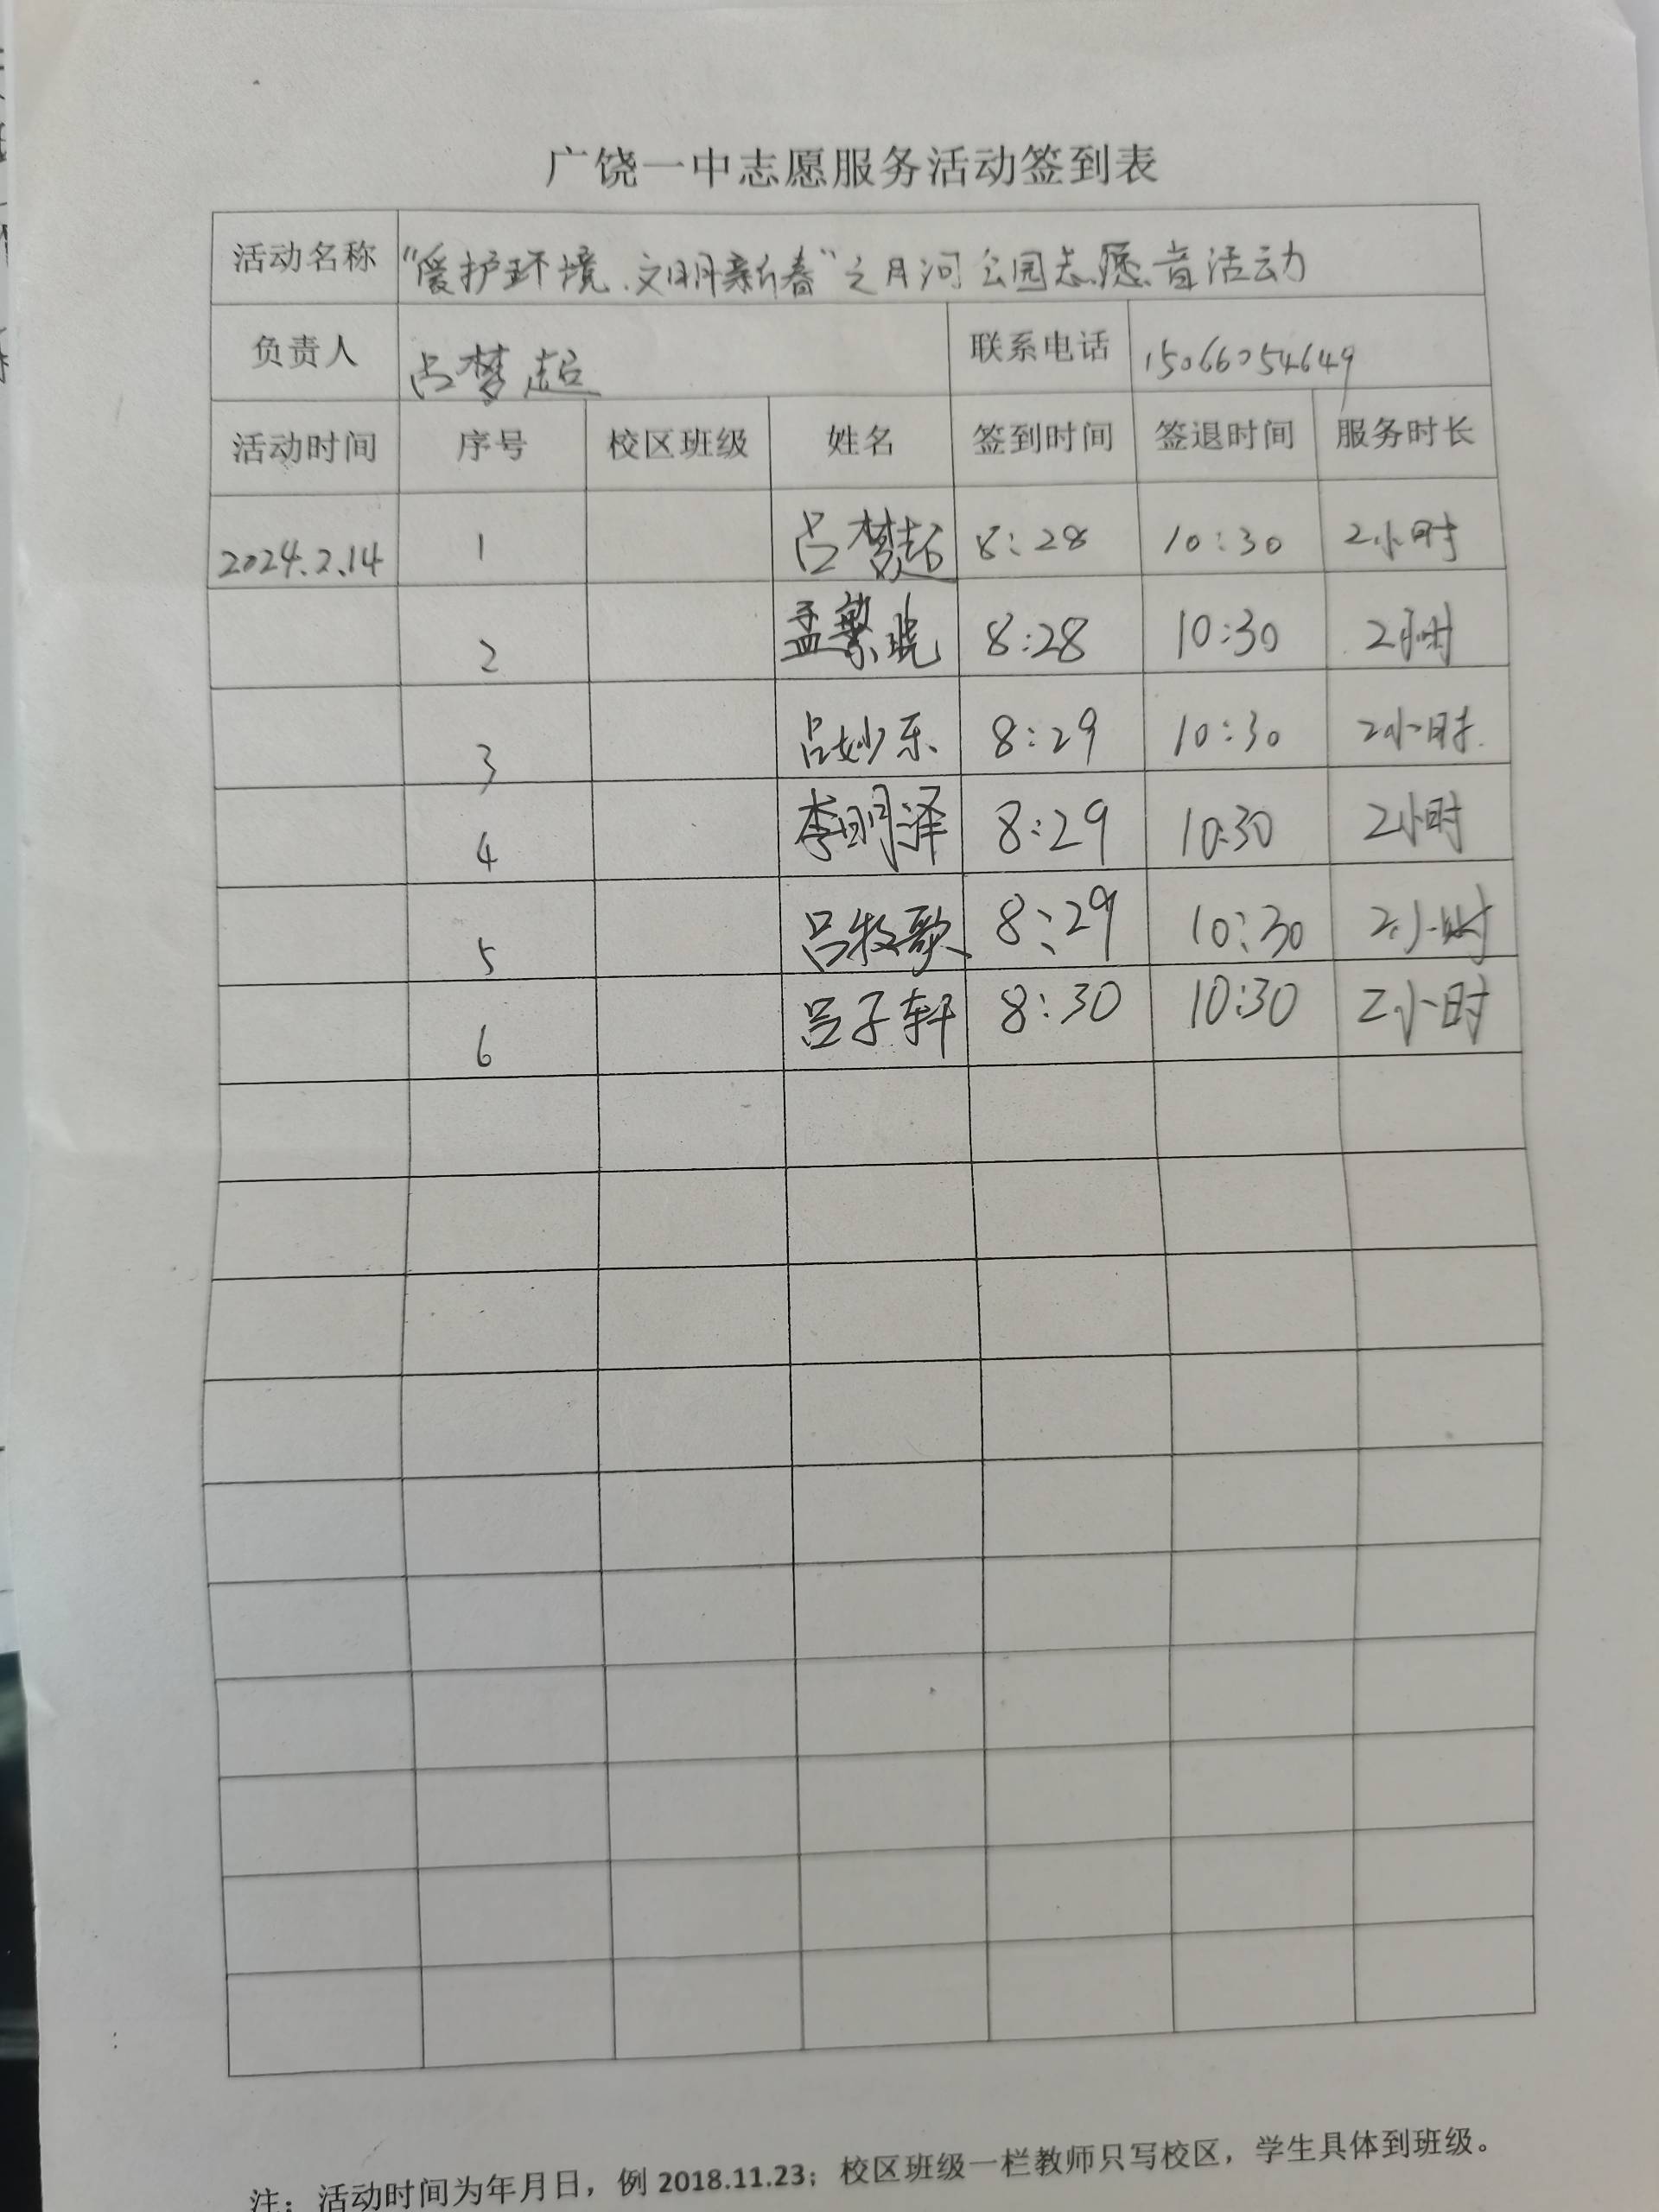 广饶一中志愿服务活动签到表
活动名称 “爱护环境、文明新春”之月河公园志愿者活动
负责人 吕梦超 联系电话 15066054649
活动时间 序号 校区班级 姓名 签到时间 签退时间 服务时长
2024.2.14 1 吕梦超 8:28 10:30 2小时
2 孟繁晓 8:28 10:30 2小时
3 吕妙乐 8:29 10:30 2小时
4 李明泽 8:29 10:30 2小时
5 吕牧歌 8:29 10:30 2小时
6 吕子轩 8:30 10:30 2小时
注：活动时间为年月日，例 2018.11.23；校区班级一栏教师只写校区，学生具体到班级。